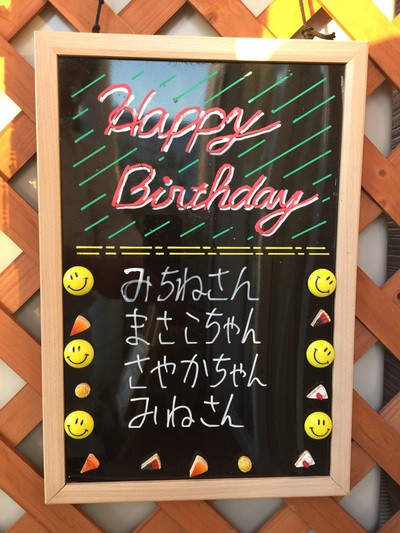 Happy
Birthday
みちねさん
まさこちゃん
さやかちゃん
みねさん